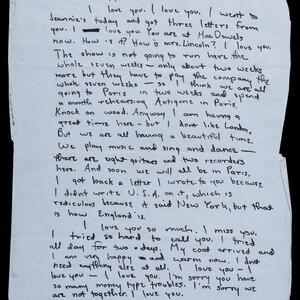 I love you. I love you. I went to
Jeannie's today and got three letters from
you. I love you You are at MacDowells
now. How is it? How is mrs. Lincoln? I love you.
The show is not going to run here the
whole seven weeks - only about two weeks
more but they have to pay the company the
whole seven weeks - so I think we are all
going to Paris in two weeks and spend
a month rehearsing Antigone in Paris,
Knock on wood. Anyway I am having a
great time here - but I dont like London,
But we are all having a beautiful time.
We play music and sing and dance -
there are eight guitars and two recorders
here. And soon we will all be in Paris,
I got back a letter I wrote to you because
I didnt write U.S.A. on it, which is
rediculous because it said New York, but that
is how England is.
I love you so much. I miss you.
I tried so hard to call you. I tried
all day for two days. My coat arrived and
I am very happy and warm now. I dont
need anything else at all. I love you - I
love you - I love you. I'm sorry you have
so many money type troubles. I'm sorry we
are not together. I love you.